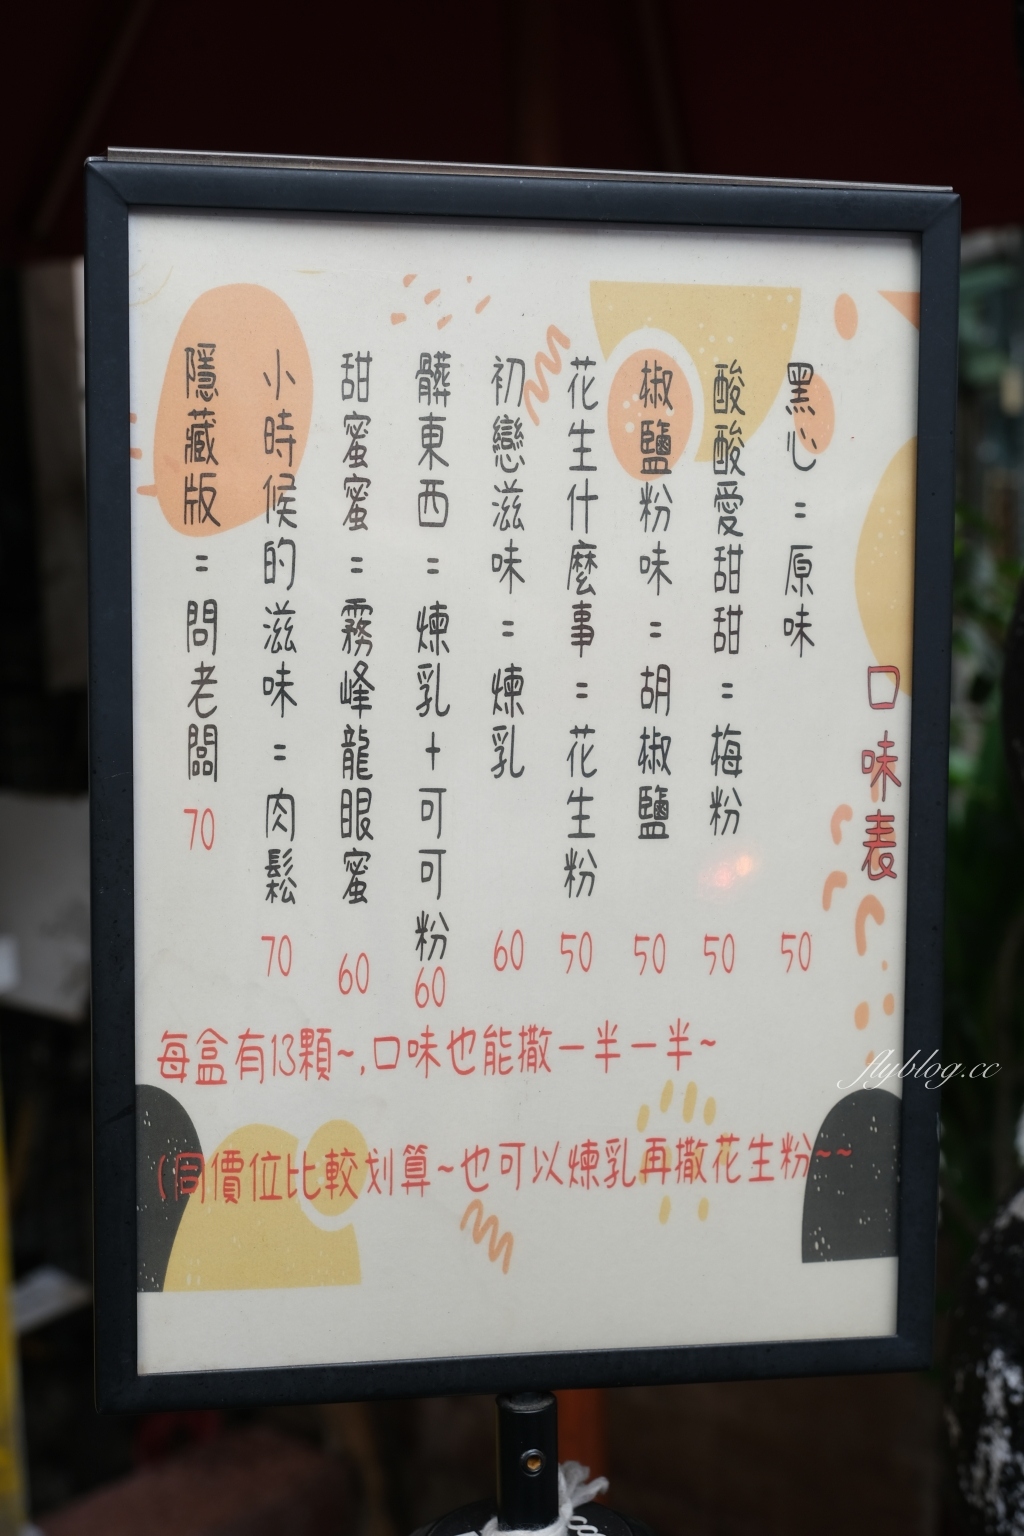 口味表
黑心=原味 50
酸酸愛甜甜=梅粉 50
椒鹽粉味=胡椒鹽 50
花生什麼事=花生粉 50
初戀滋味=煉乳 60
髒東西=煉乳+可可粉 60
甜蜜蜜=霧峰龍眼蜜 60
小時候的滋味=肉鬆 70
隱藏版=問老闆 70
每盒有13顆~,口味也能撒一半一半~
(同價位比較划算~也可以煉乳再撒花生粉~~
flyblog.cc